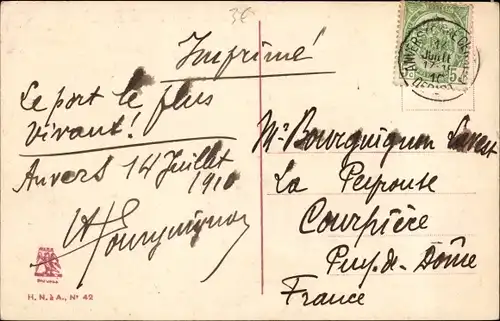 3€
Imprimé!
Le port le plus
vivant!
Anvers 14 Juillet
1910
Bourguignon
H. N. & A., Nº 42
Mr Bourguignon
La Peyrouse
Courpière
Puy-de-Dôme
France
ANVERS
14
JUIL
10
5